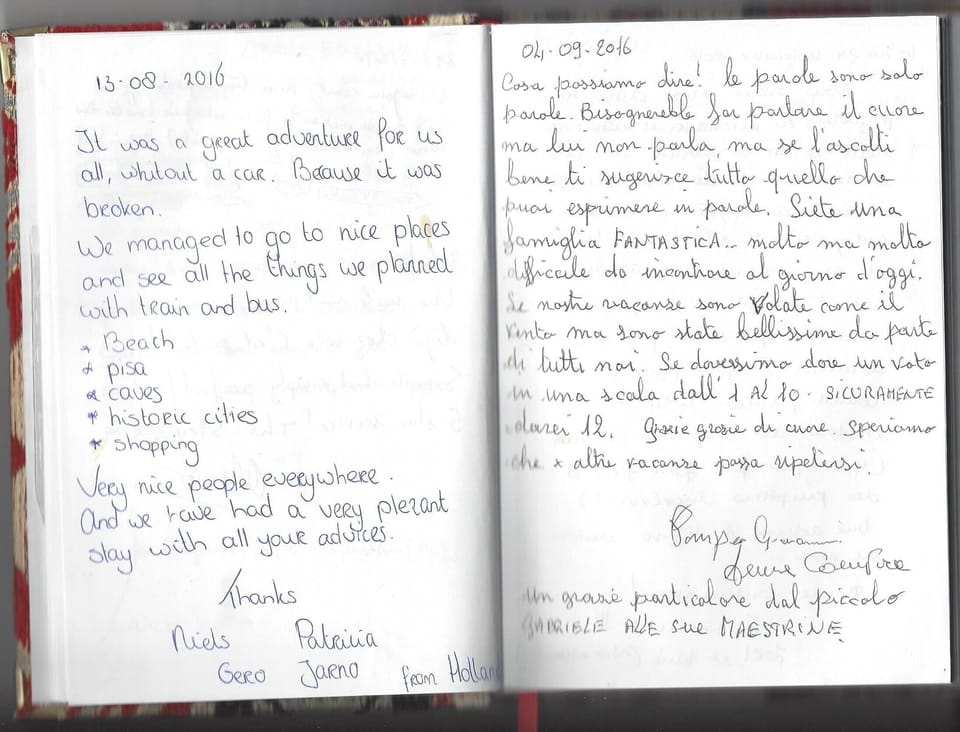 13-08-2016
It was a great adventure for us
all, whitout a car. Because it was
broken.
We managed to go to nice places
and see all the things we planned
with train and bus.
* Beach
* pisa
* caves
* historic cities
* shopping
Very nice people everywhere.
And we have had a very plezant
stay with all your advices.
Thanks
Niels Patricia
Gero Jarno from Holland
04-09-2016
Cosa possiamo dire! le parole sono solo
parole. Bisognerebbe far parlare il cuore
ma lui non parla, ma se l'ascolti
bene ti sugerisce tutto quello che
puoi esprimere in parole. Siete una
famiglia FANTASTICA.. molto ma molto
difficile da incontrare al giorno d'oggi.
Le nostre vacanze sono volate come il
vento ma sono state bellissime da parte
di tutti noi. Se dovessimo dare un voto
in una scala dall'1 AL 10. SICURAMENTE
darei 12. Grazie grazie di cuore. Speriamo
che x altre vacanze possa ripetersi.
Un grazie particolare dal piccolo
GABRIELE ALLE sue MAESTRINE.